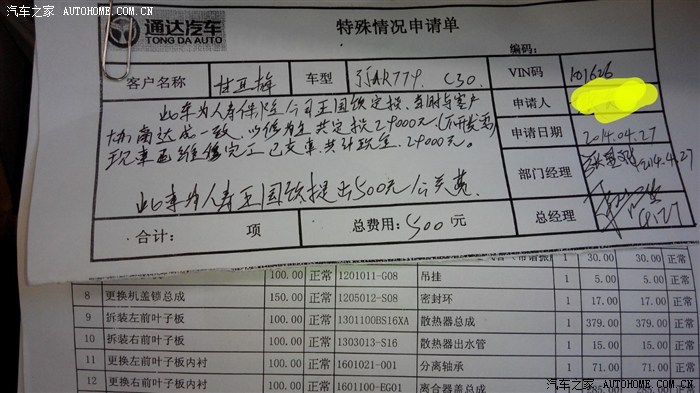 汽车之家 | AUTOHOME.COM.CN
汽车之家 | AUTOHOME.COM.CN
通达汽车
TONG DA AUTO
特殊情况申请单
编码:
客户名称 甘亚梅 车型 C30. VIN码 101626
此车为人寿保险公司王国钦定损,当时与客户
协商达成一致,以修为主,共定损29000元,(不开发票)
现车已维修完工已交车,共计现金,29000元。
此车为人寿王国钦提出500元公关费
申请人
申请日期 2014.04.27
部门经理 2014.4.27
总经理 4/27
合计: 项 总费用: 500元
1 30.00 30.00 正常
100.00 正常 1201011-G08 吊挂 1 5.00 5.00 正常
8 更换机盖锁总成 150.00 正常 1205012-S08 密封环 1 17.00 17.00 正常
9 拆装左前叶子板 100.00 正常 1301100BS16XA 散热器总成 1 379.00 379.00 正常
10 拆装右前叶子板 100.00 正常 1303013-S16 散热器出水管 1 15.00 15.00 正常
11 更换左前叶子板内衬 100.00 正常 1601021-001 分离轴承 1 71.00 71.00 正常
12 更换右前叶子板内衬 100.00 正常 1601100-EG01 离合器盖总成 285.00 正常
汽车之家 | AUTOHOME.COM.CN
汽车之家 | AUTOHOME.COM.CN